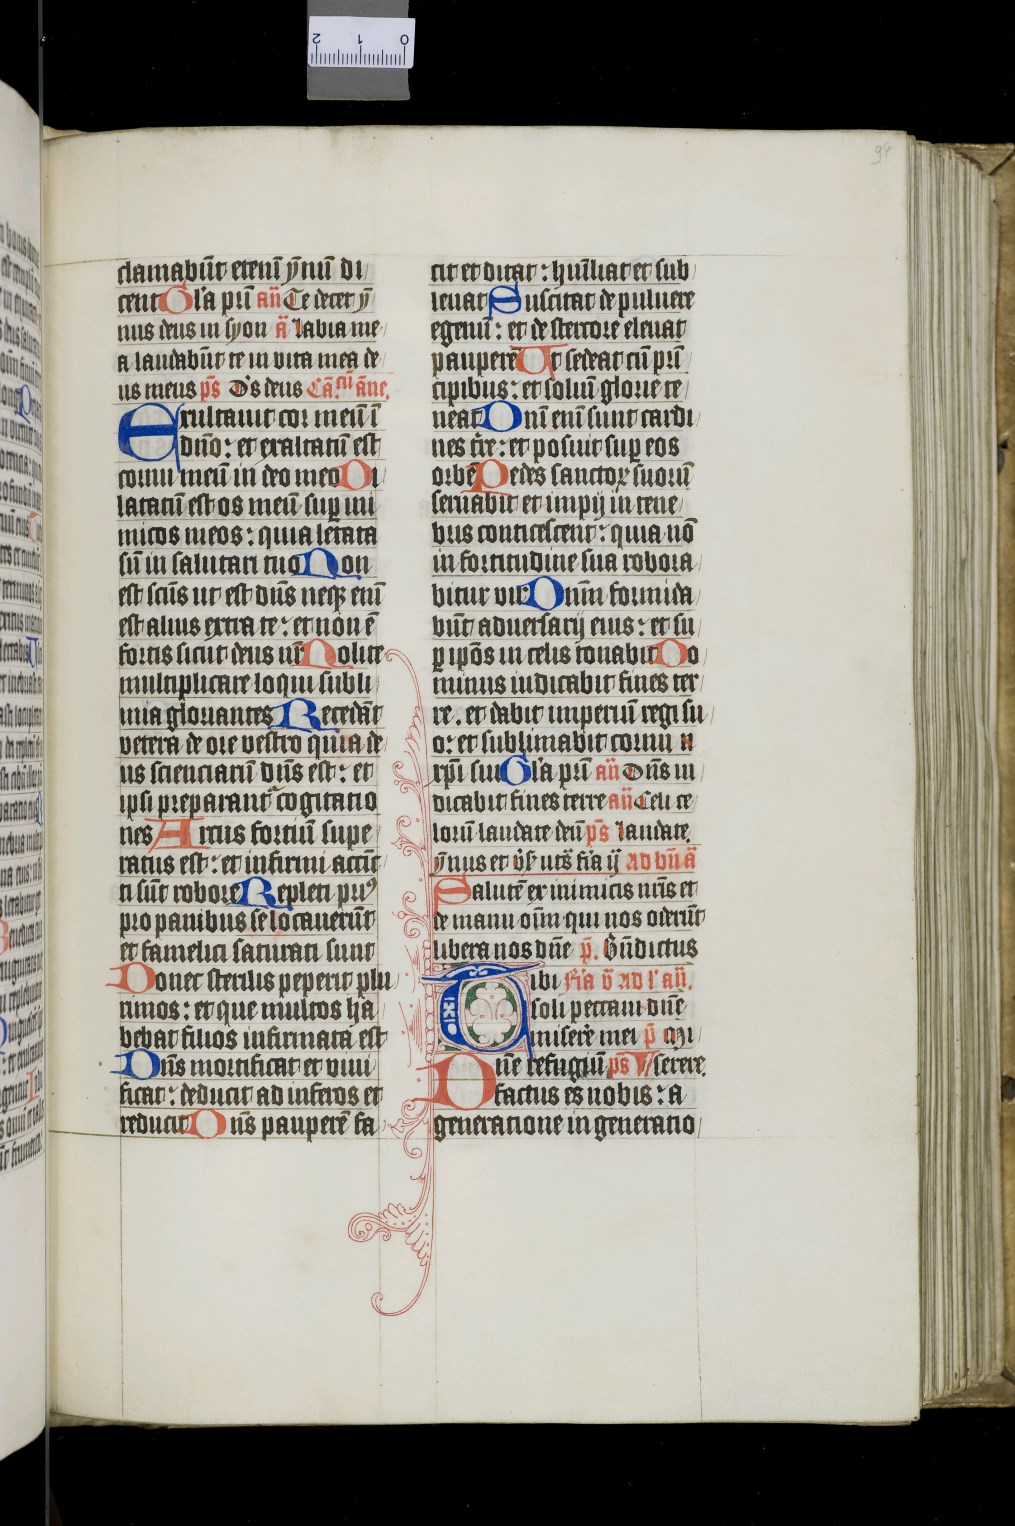 clamabūt etenī ẏmnū di
cent Gl'a pr̄i an̄ Te decet ẏm̄
nus deus in sẏon ā labia me
a laudabūt te in vita mea de
us meus p̄s D's deus Cā.cū āne.
Exultauit cor meū ī
dn̄o : et exaltatū est
cornu meū in deo meo Di
latatū est os meū sup̲ ini
micos meos : quia letata
sū in salutari tuo Non
est sc̄us ut est dn̄s neqꝫ enī
est alius extra te : et non ē
fortis sicut deus nr̄ Nolite
multiplicare loqui subli
mia gloriantes Recedāt
vetera de ore vestro quia de
us scienciarū dn̄s est : et
ipsi preparant᷑ cogitatio
nes Arcus fortiū supe
ratus est : et infirmi accīt
ti sūt robore Repleti pri꯹
pro panibus se locauerūt
et famelici saturati sunt
Donec sterilis peperit plu
rimos : et que multos ha
bebat filios infirmata est
Dn̄s mortificat et viui
ficat : deducit ad inferos et
reducit Dn̄s pauperē fa
cit et ditat : hūiliat et sub
leuat Suscitat de puluere
egenū : et de stercore eleuat
pauperē Ut sedeat cū pri
cipibus : et soliū glorie te
neat Dn̄i enī sunt cardi
nes tr̄re : et posuit sup̲ eos
orbē Pedes sanctoꝝ suorū
seruabit et impij in tene
bris conticescent : quia nō
in fortitudine sua robora
bitur vir Dn̄m formida
būt aduersarij eius : et su
p̲ ip̄os in celis tonabit Do
minus iudicabit fines ter
re . et dabit imperiū regi su
o : et sublimabit cornu
xp̄i sui Gl'a pr̄i an̄ Dn̄s iu
dicabit fines terre an̄ Celi ce
lorū laudate deū p̄s laudate.
ẏmnus et v̄s ut s̄ fr̄ia ij ad bn̄ ā
Salutē ex inimicis nr̄is et
de manu oīm qui nos oderūt
libera nos dn̄e p̄. Bn̄dictus
Tibi fr̄ia v̄ ad l' an̄.
soli peccaui dn̄e
miserē mei p̄ Mi
Dn̄e refugiū p̄s serere.
factus es nobis : a
generatione in generatio